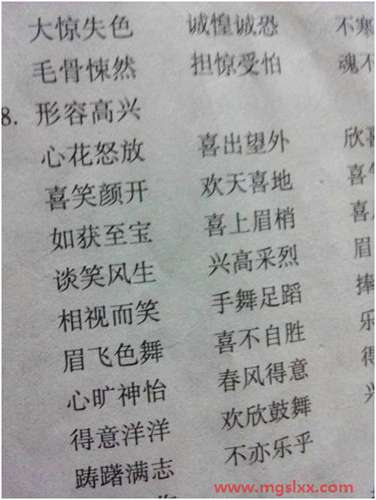 大惊失色 诚惶诚恐 不寒
毛骨悚然 担惊受怕 魂不
8. 形容高兴
心花怒放 喜出望外 欣
喜笑颜开 欢天喜地 喜
如获至宝 喜上眉梢 喜
谈笑风生 兴高采烈 眉
相视而笑 手舞足蹈 捧
眉飞色舞 喜不自胜 乐
心旷神怡 春风得意
得意洋洋 欢欣鼓舞
踌躇满志 不亦乐乎
www.mgslxx.com